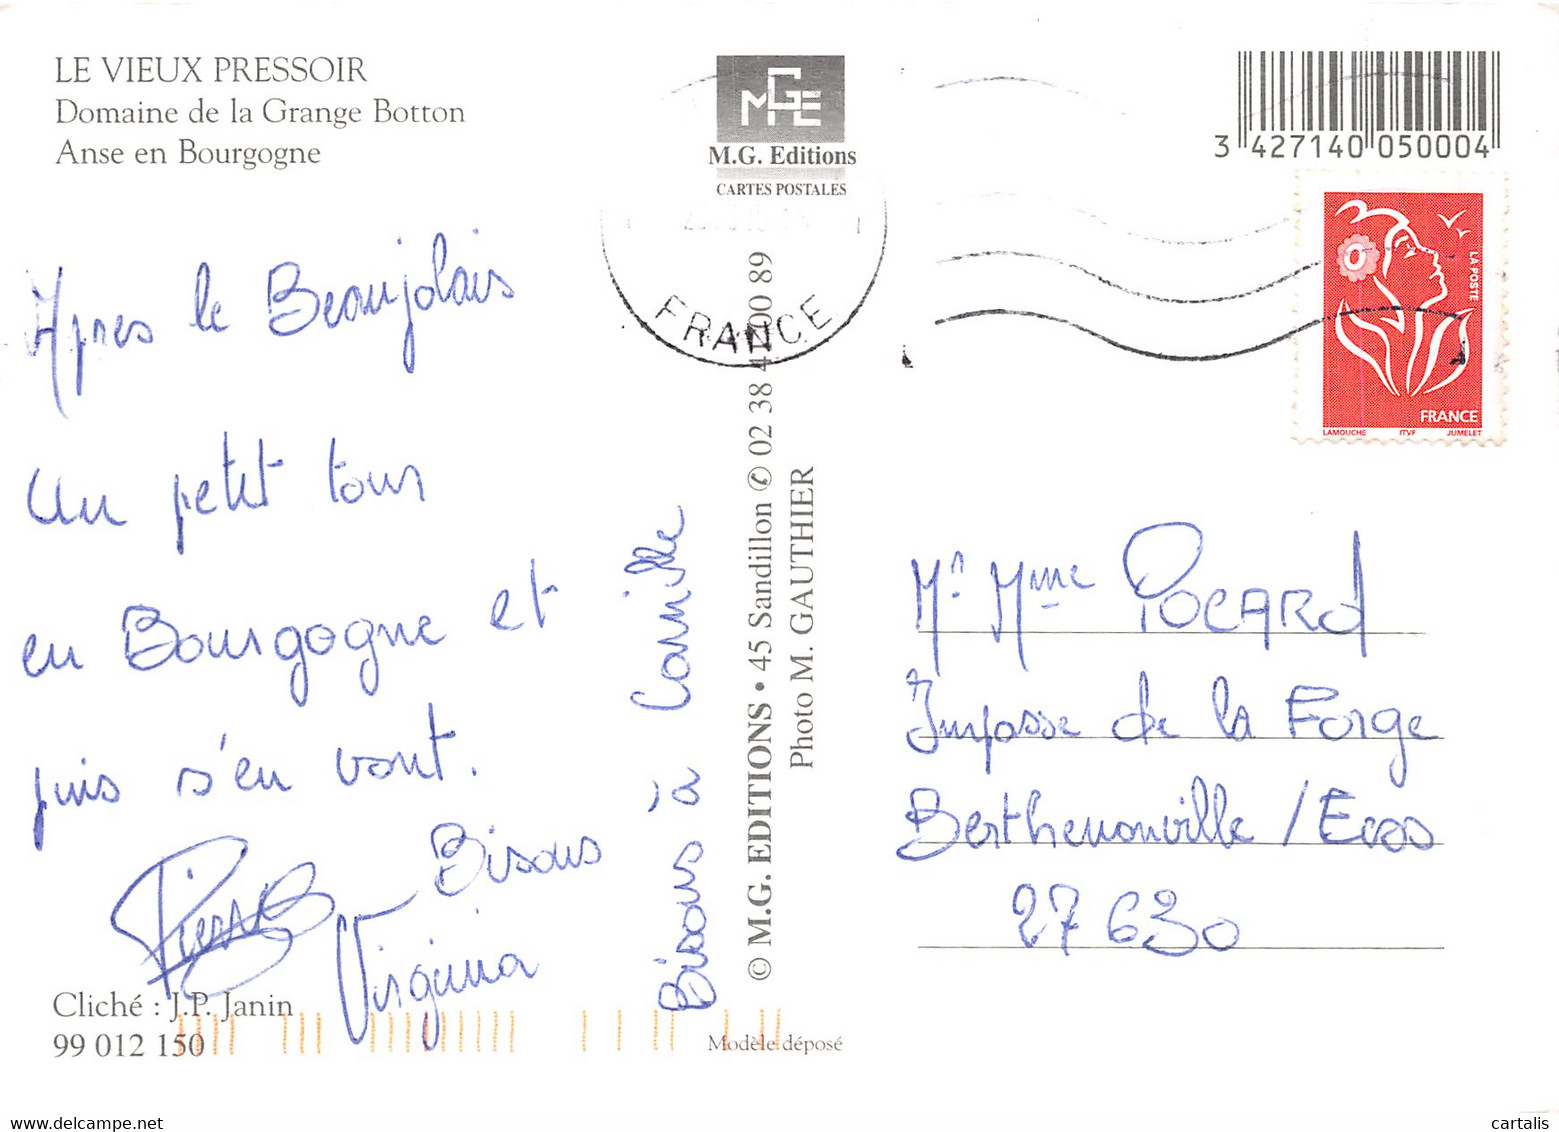 LE VIEUX PRESSOIR
Domaine de la Grange Botton
Anse en Bourgogne
Apres le Beaujolais
Un petit tour
en Bourgogne et
puis s'en vont.
Bisous
Pierre
Virginia
Bisous à Camille
Cliché : J.P. Janin
99 012 150
MGE
M.G. Editions
CARTES POSTALES
FRANCE
© M.G. EDITIONS • 45 Sandillon ✆ 02 38 41 00 89
Photo M. GAUTHIER
Modèle déposé
3 427140 050004
LA POSTE
FRANCE
LAMOUCHE ITVF JUMELET
Mr Mme POCARD
Impasse de la Forge
Berthenonville / Ecos
27630
cartalis